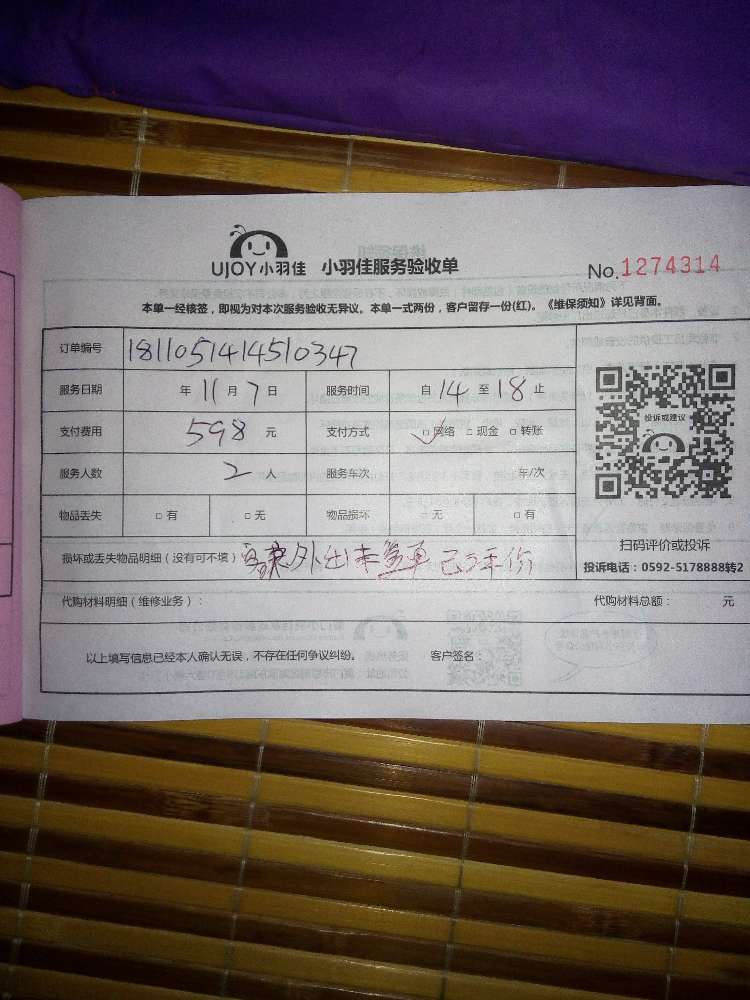 UJOY小羽佳 小羽佳服务验收单 No.1274314
本单一经核签，即视为对本次服务验收无异议。本单一式两份，客户留存一份(红)。《维保须知》详见背面。
订单编号 1811051414510347
服务日期 年 11月 7日 服务时间 自 14 至 18 止
支付费用 598 元 支付方式 □网络 □现金 □转账
服务人数 2 人 服务车次 车/次
物品丢失 □有 □无 物品损坏 □无 □有
投诉或建议
扫码评价或投诉
投诉电话：0592-5178888转2
损坏或丢失物品明细（没有可不填） 外出未签单
代购材料明细（维修业务）： 代购材料总额： 元
以上填写信息已经本人确认无误，不存在任何争议纠纷。 客户签名：